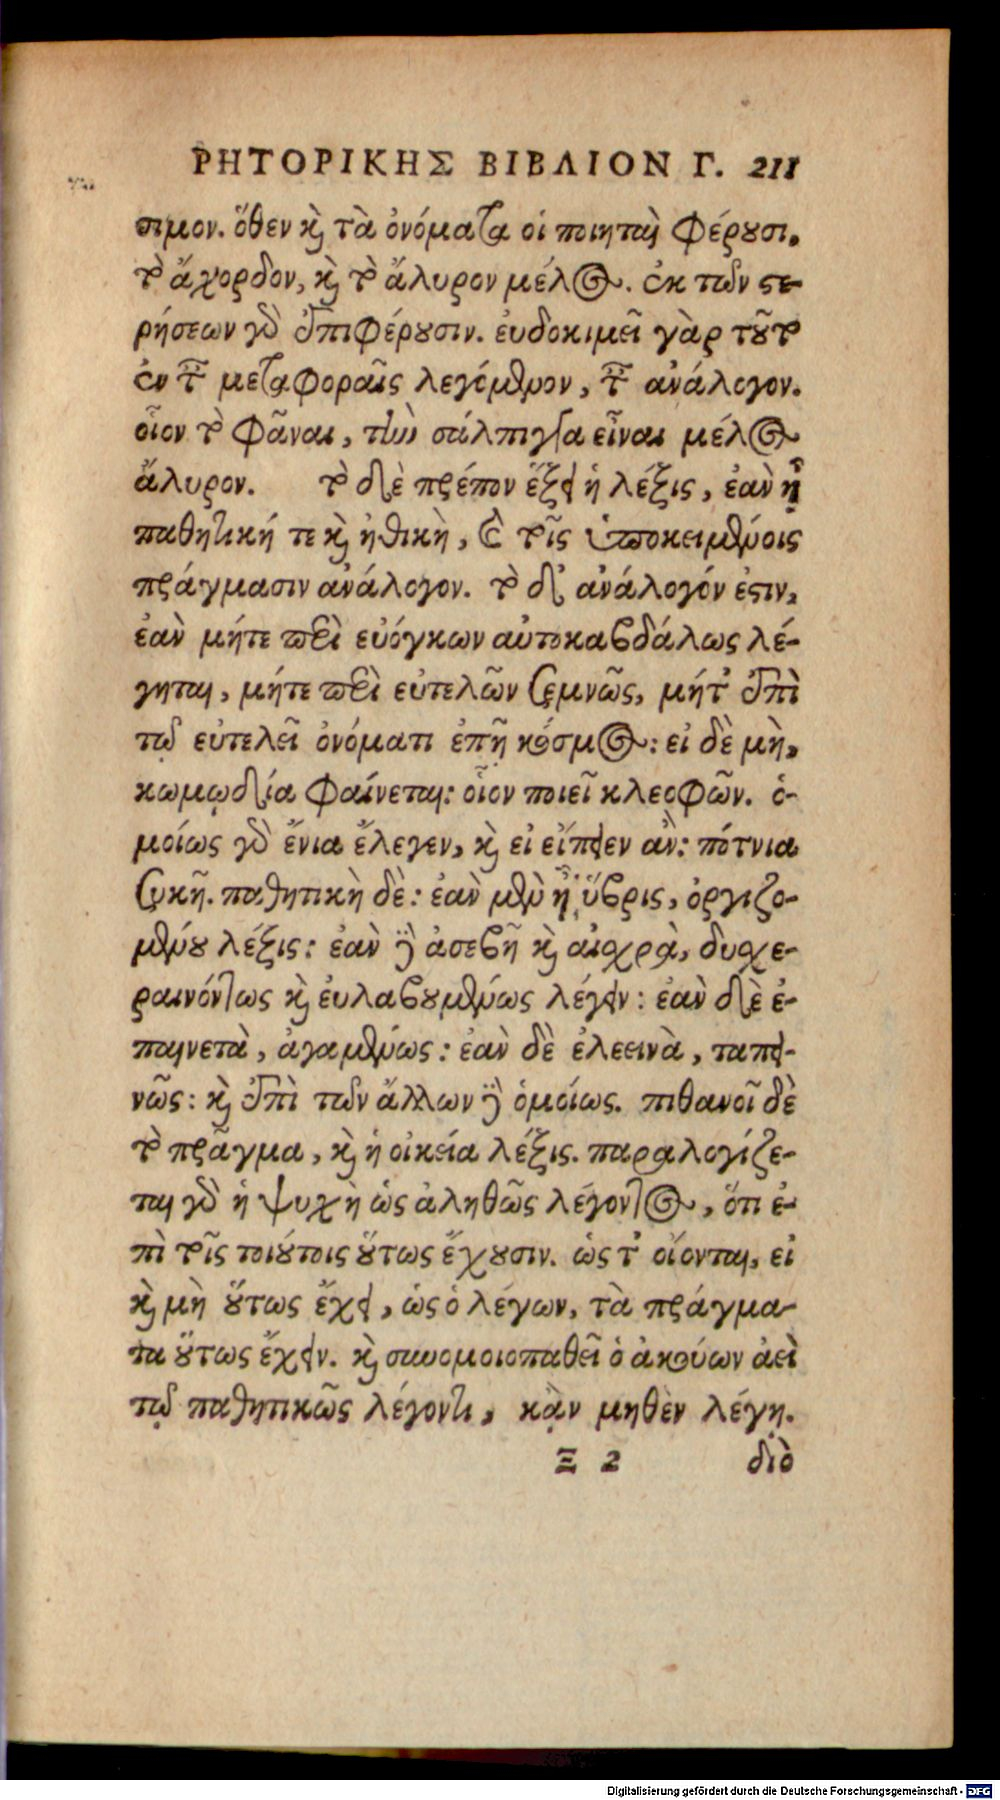 ΡΗΤΟΡΙΚΗΣ ΒΙΒΛΙΟΝ Γ. 211
σιμον. ὅθεν καὶ τὰ ὀνόματα οἱ ποιηταὶ φέρουσι,
τὸ ἄχορδον, καὶ τὸ ἄλυρον μέλος. ἐκ τῶν στε-
ρήσεων γὸ ἐπιφέρουσιν. ἐυδοκιμεῖ γὰρ τοῦτο
ἐν ταῖς μεταφοραῖς λεγόμενον, τῆς ἀνάλογον.
οἷον τὸ φᾶναι, τὴν σάλπιγγα εἶναι μέλος
ἄλυρον. τὸ δὲ πρέπον ἕξει ἡ λέξις, ἐὰν ᾖ
παθητική τε καὶ ἠθικὴ, καὶ τοῖς ὑποκειμένοις
πράγμασιν ἀνάλογον. τὸ δ' ἀνάλογόν ἐστιν,
ἐὰν μήτε περὶ εὐόγκων αὐτοκαβδάλως λέ-
γηται, μήτε περὶ εὐτελῶν σεμνῶς, μήτ' ἐπὶ
τῷ εὐτελεῖ ὀνόματι ἐπῇ κόσμος: εἰ δὲ μὴ,
κωμῳδία φαίνεται: οἷον ποιεῖ κλεοφῶν. ὁ-
μοίως γὸ ἔνια ἔλεγεν, καὶ εἰ εἴπειεν ἂν: πότνια
συκῆ. παθητικὴ δὲ: ἐὰν μὲν ᾖ ὕβρις, ὀργιζο-
μένου λέξις: ἐὰν δὲ ἀσεβῆ καὶ αἰσχρὰ, δυσχε-
ραινόντως καὶ ἐυλαβουμένως λέγειν: ἐὰν δὲ ἐ-
παινετὰ, ἀγαμένως: ἐὰν δὲ ἐλεεινὰ, ταπει-
νῶς: καὶ ἐπὶ τῶν ἄλλων δὲ ὁμοίως. πιθανοῖ δὲ
τὸ πρᾶγμα, καὶ ἡ οἰκεία λέξις. παραλογίζε-
ται γὸ ἡ ψυχὴ ὡς ἀληθῶς λέγοντος, ὅτι ἐ-
πὶ τοῖς τοιούτοις οὕτως ἔχουσιν. ὡς τ' οἴονται, εἰ
καὶ μὴ οὕτως ἔχει, ὡς ὁ λέγων, τὰ πράγμα-
τα οὕτως ἔχειν. καὶ συνομοιοπαθεῖ ὁ ἀκούων ἀεὶ
τῷ παθητικῶς λέγοντι, κᾂν μηθὲν λέγῃ.
Ξ 2 διὸ
Digitalisierung gefördert durch die Deutsche Forschungsgemeinschaft - DFG